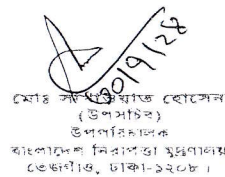 ৩০/৭/২৪
মোঃ হোসেন
(উপসচিব)
উপপরিচালক
বাংলাদেশ নিরাপত্তা মুদ্রণালয়
তেজগাঁও, ঢাকা-১২০৮।